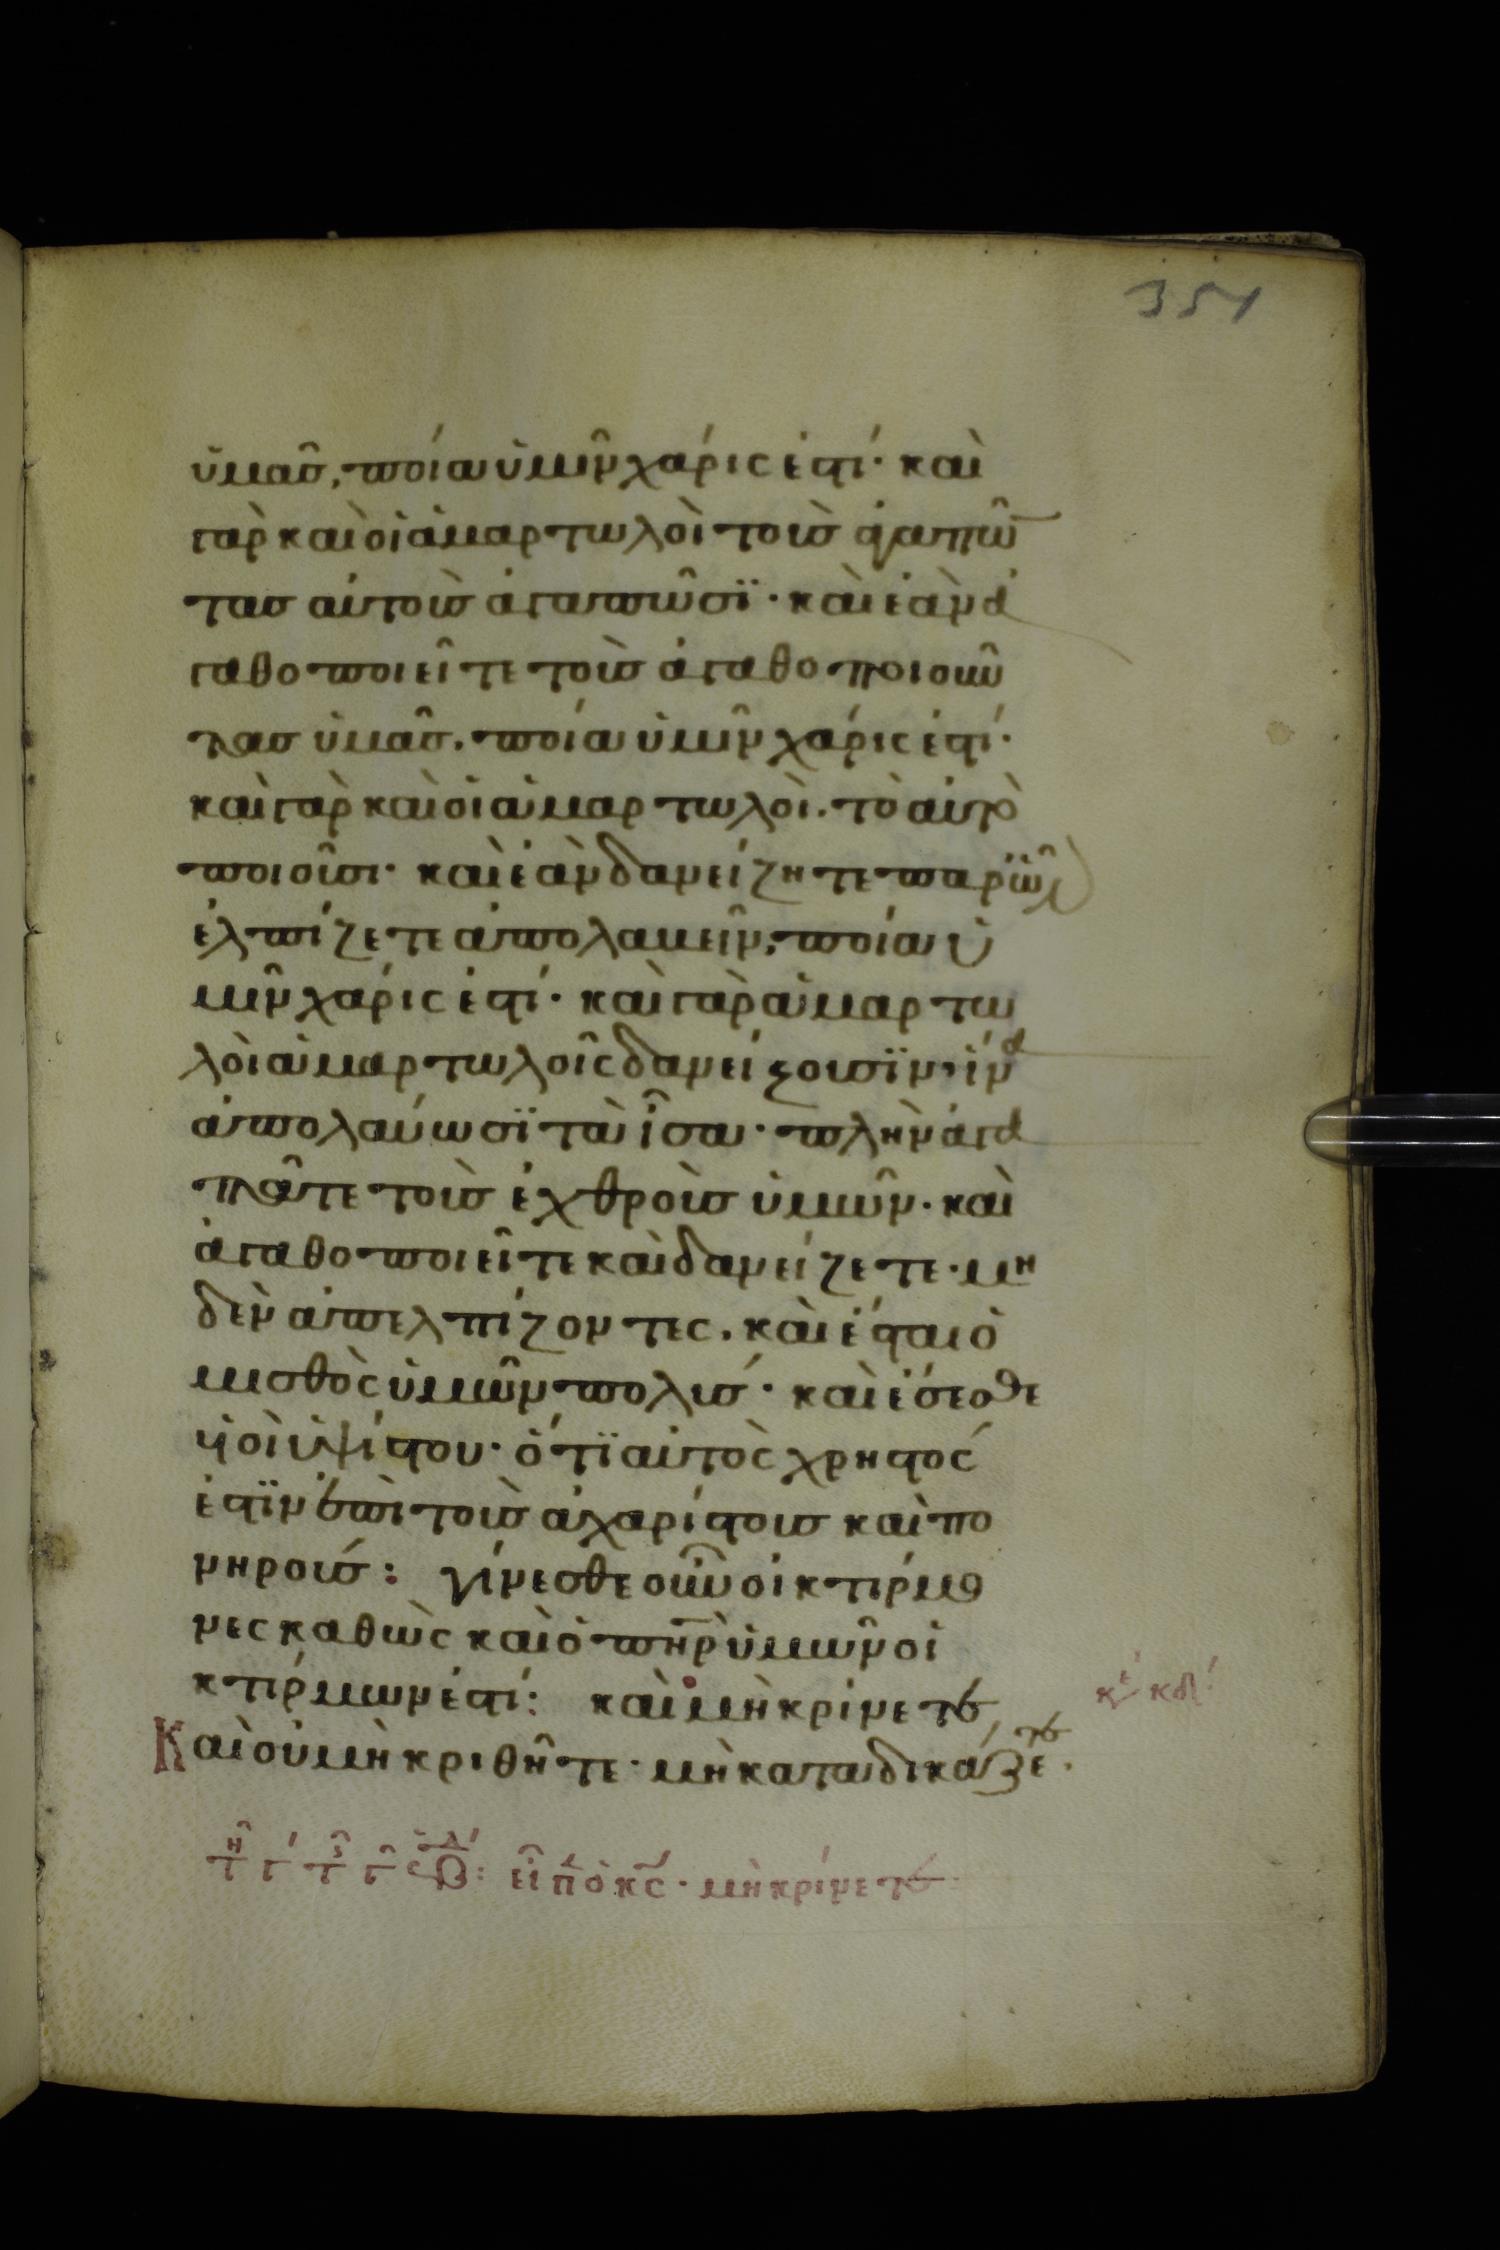 351
ὑμᾶσ, ποία ὑμῖν χάρις ἐστί· καὶ
γὰρ καὶ οἱ ἁμαρτωλοὶ τοὺσ ἀγαπῶ̅
τασ αὐτοὺσ ἀγαπῶσϊ· καὶ ἐὰν ἀ
γαθοποιεῖτε τοὺσ ἀγαθοποιοῦν
τασ ὑμᾶσ. ποία ὑμῖν χάρις ἐστί·
καὶ γὰρ καὶ οἱ ἁμαρτωλοὶ. τὸ αὐτὸ
ποιοῦσι· καὶ ἐὰν δανείζητε παρ' ὧν
ἐλπίζετε ἀπολαβεῖν, ποία ὑ
μῖν χάρις ἐστί· καὶ γὰρ ἁμαρτω
λὸι ἁμαρτωλοῖς δανείζουσϊν, ἵνα
ἀπολαύωσϊ τὰ ἶσα· πλὴν ἀγα
πᾶτε τοὺσ ἐχθροὺσ ὑμῶν· καὶ
ἀγαθοποιεῖτε καὶ δανείζετε· μη
δὲν ἀπελπίζοντες. καὶ ἔσται ὁ
μισθὸς ὑμῶν πολύσ· καὶ ἔσεσθε
ὑιοὶ ὑψίστου· ὅτϊ αὐτὸς χρηστός
ἐστϊν ἐπὶ τοὺσ ἀχαρίστουσ καὶ πο
νηρούσ: γίνεσθε οὖν οἰκτίρμο
νες καθὼς καὶ ὁ πη̅ρ ὑμῶν οἰ
κτίρμων ἐστί: καὶ μὴ κρίνετε
Καὶ οὐ μὴ κριθῆτε· μὴ καταδικάζετε.
εἶπ ὁ κς· μὴ κρίνετε